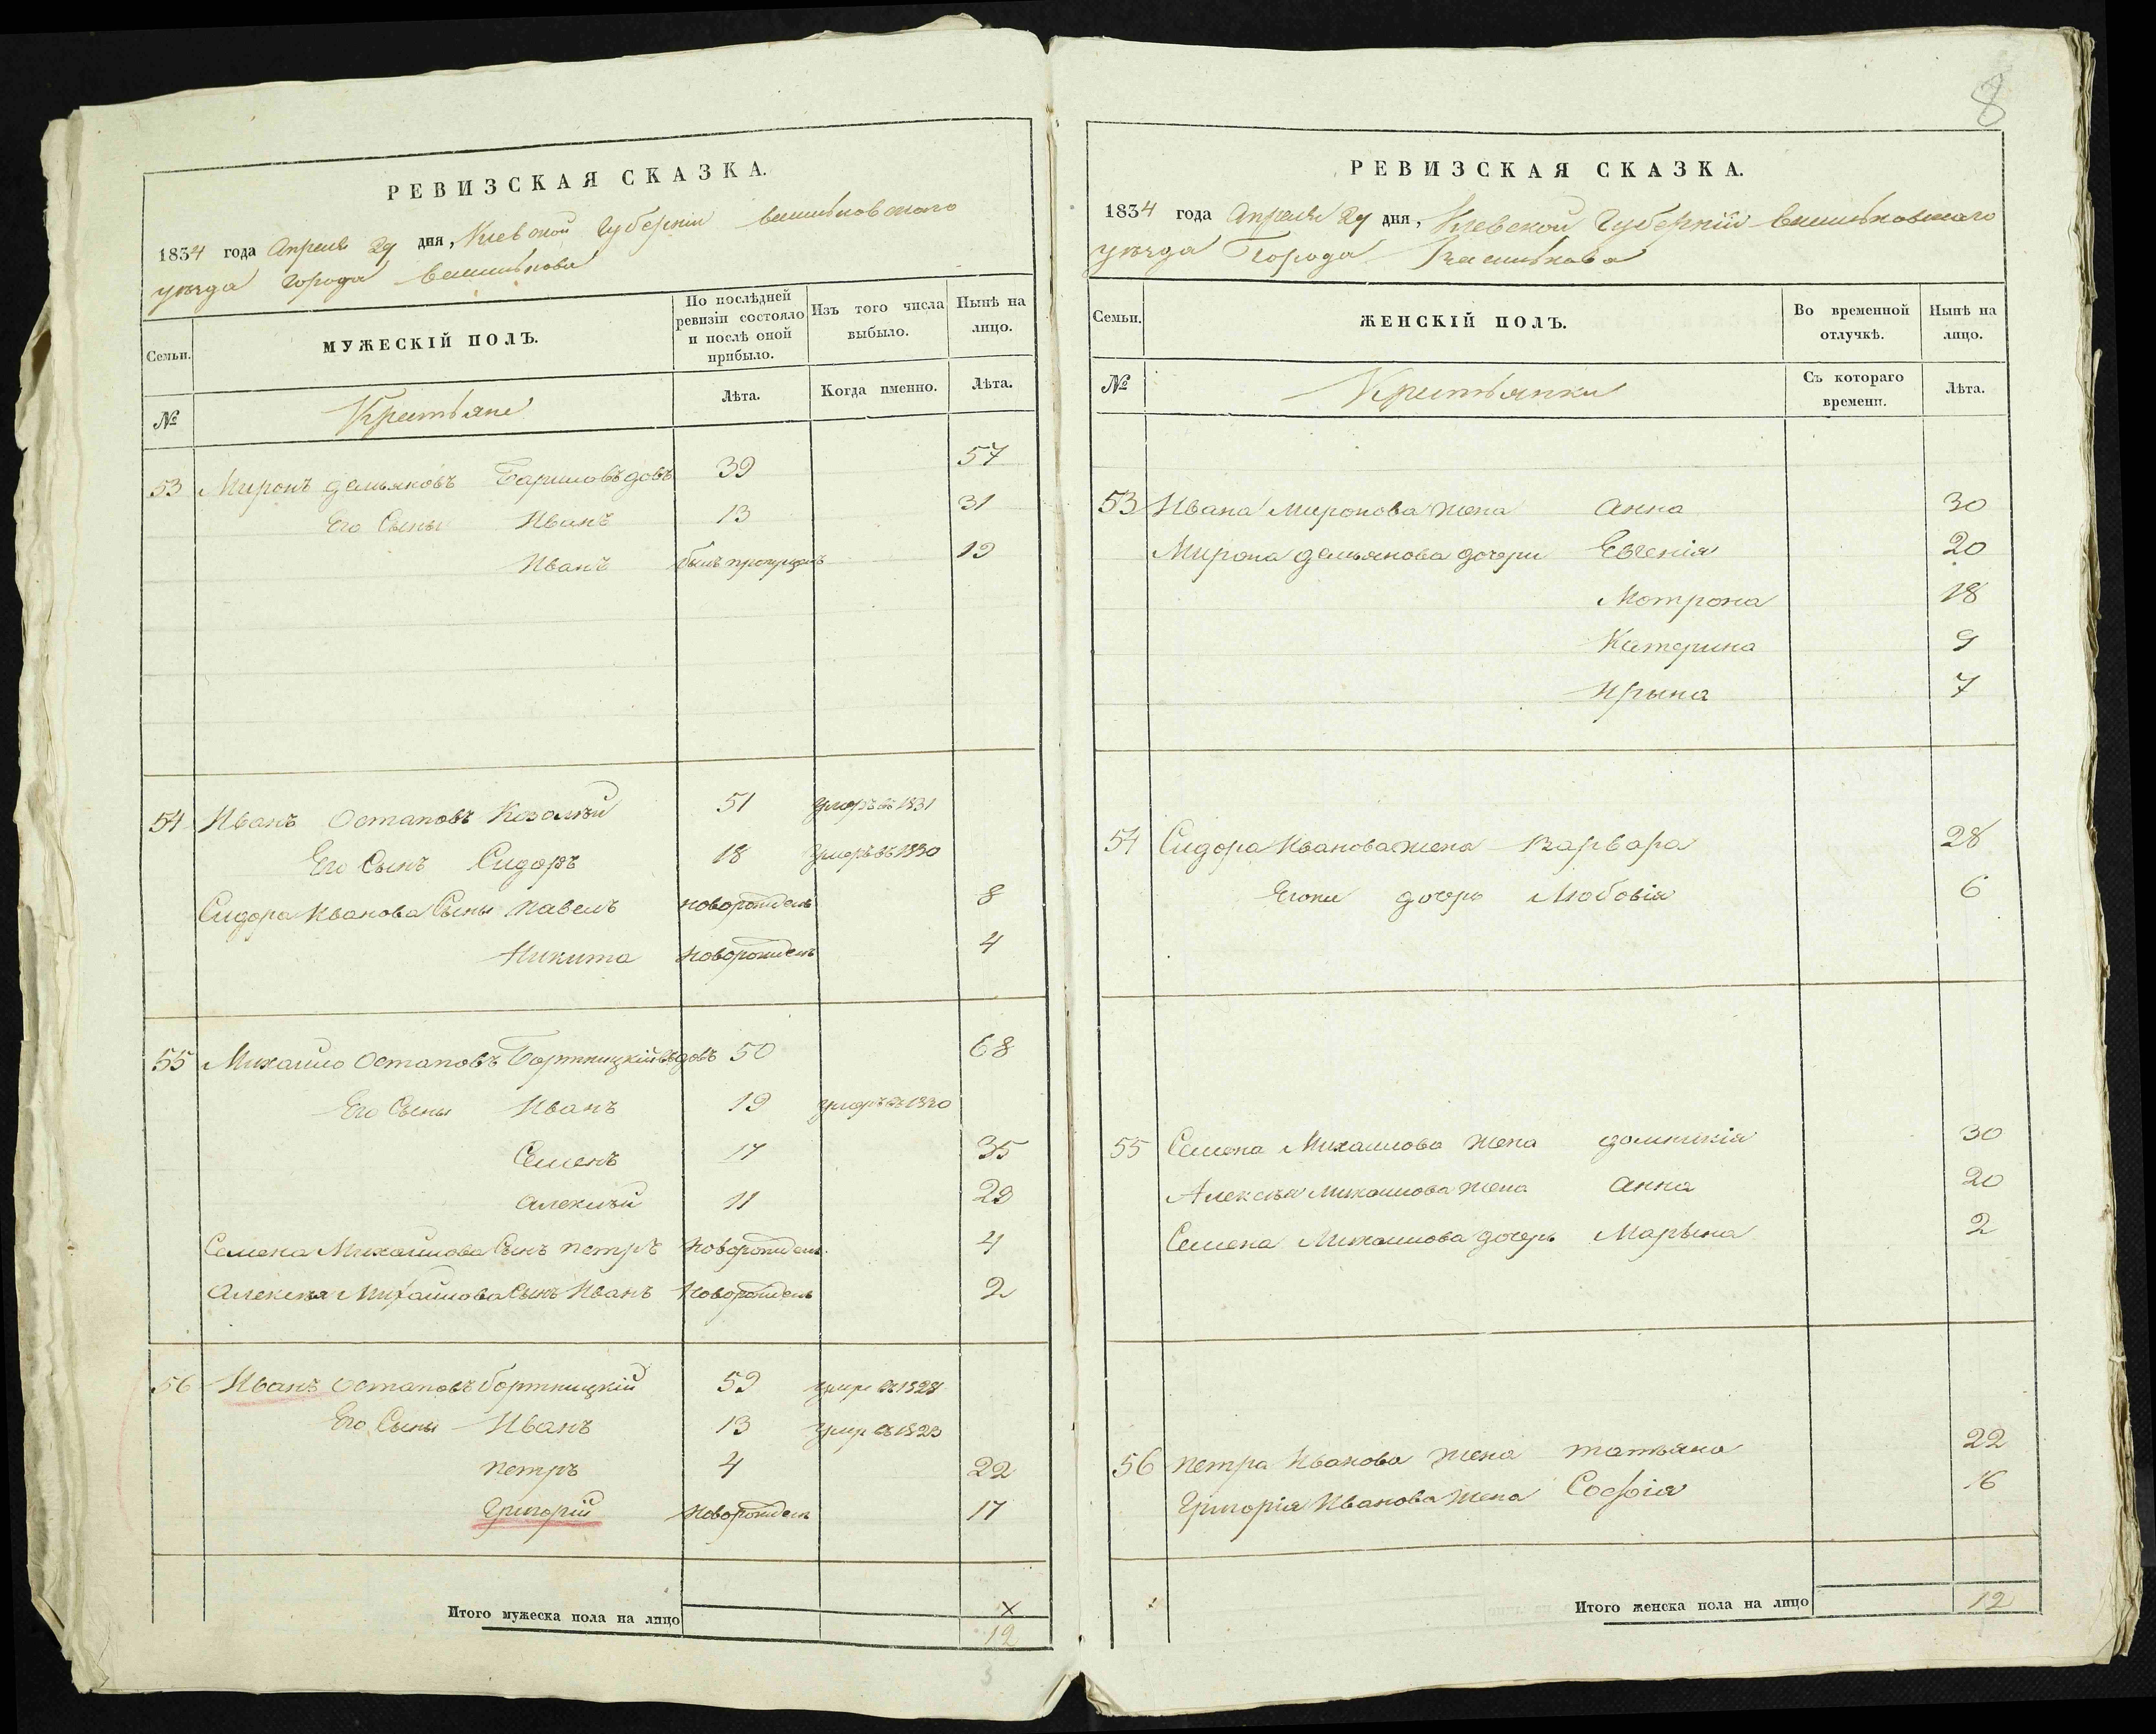 8
РЕВИЗСКАЯ СКАЗКА.
1834 года Апреля 29 дня, Киевской Губернии васильковского
уѣзда города василькова
Семьи.
МУЖЕСКІЙ ПОЛЪ.
По послѣдней ревизіи состояло и послѣ оной прибыло.
Изъ того числа выбыло.
Нынѣ на лицо.
№
Крестьяне
Лѣта.
Когда именно.
Лѣта.
53 Миронъ демьяновъ 39 57
Его Сыны Иванъ 13 31
Иванъ былъ пропущенъ 19
54 Иванъ Остаповъ 51 умеръ въ 1831
Его Сынъ Сидоръ 18 умеръ въ 1830
Сидора Иванова Сыны павелъ новорожденъ 8
Никита Новорожденъ 4
55 Михайло Остаповъ Бортницкій вдовъ 50 68
Его Сыны Иванъ 19 умеръ въ 1820
Семенъ 17 35
алексѣй 11 29
Семена Михайлова Сынъ петръ Новорожденъ 4
Алексѣя Михайлова Сынъ Иванъ Новорожденъ 2
56 Иванъ Остаповъ бортницкій 59 умеръ въ 1828
Его Сыны Иванъ 13 умеръ въ 1823
петръ 4 22
Григорій Новорожденъ 17
Итого мужеска пола на лицо
12
РЕВИЗСКАЯ СКАЗКА.
1834 года Апреля 29 дня, Киевской Губерній васильковского
уѣзда Города Василькова
Семьи.
ЖЕНСКІЙ ПОЛЪ.
Во временной отлучкѣ.
Нынѣ на лицо.
№
Крестьянки
Съ котораго времени.
Лѣта.
53 Ивана Миронова жена анна 30
Мирона демьянова дочери Евгенія 20
Мотрона 18
Катерина 9
Ирына 7
54 Сидора Иванова жена Варвара 28
дочерь Любовія 6
55 Семена Михайлова жена домникія 30
Алексѣя Михайлова жена анна 20
Семена Михайлова дочерь Марына 2
56 петра Иванова жена татьяна 22
Григорія Иванова жена Софія 16
Итого женска пола на лицо 12